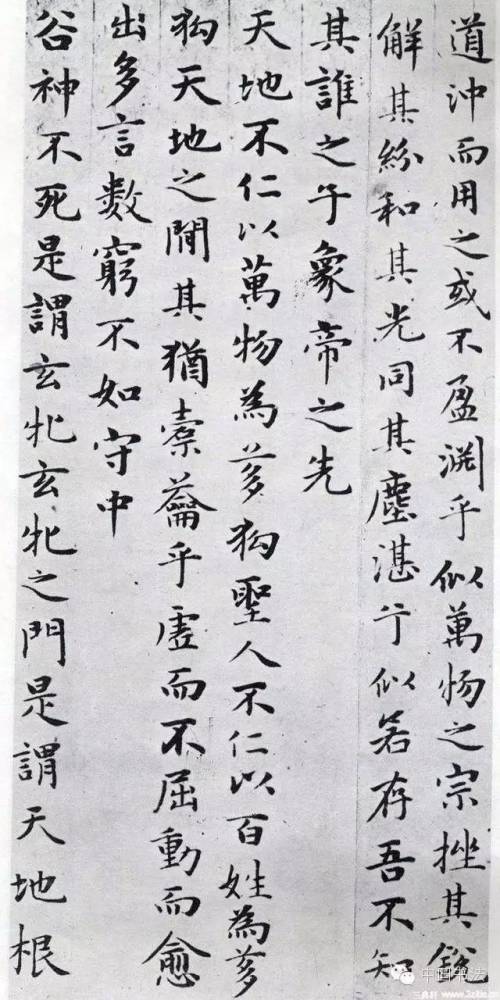 道沖而用之或不盈渊乎似萬物之宗挫其銳
解其紛和其光同其塵湛兮似若存吾不知
其誰之子象帝之先
天地不仁以萬物為芻狗聖人不仁以百姓為芻
狗天地之間其猶橐籥乎虛而不屈動而愈
出多言數窮不如守中
谷神不死是謂玄牝玄牝之門是謂天地根
中国书法